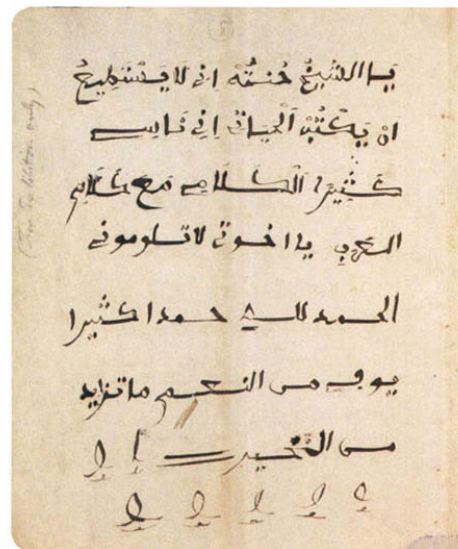 يَا الشَّيْخُ حُنتُه اِنِي لَا يَسْتَطِيعُ
اَنْ يَكْتُبْ اَلْحَيَاتِي اِنِي نَاسِي
كَثِيرًا الْكَلَامِي مَعَ كَلَامِ
العرب يا اخوتي لا تلوموني
الحمد لله حمدا كثيرا
يوفي من النعم ما تزايد
من الخيرت